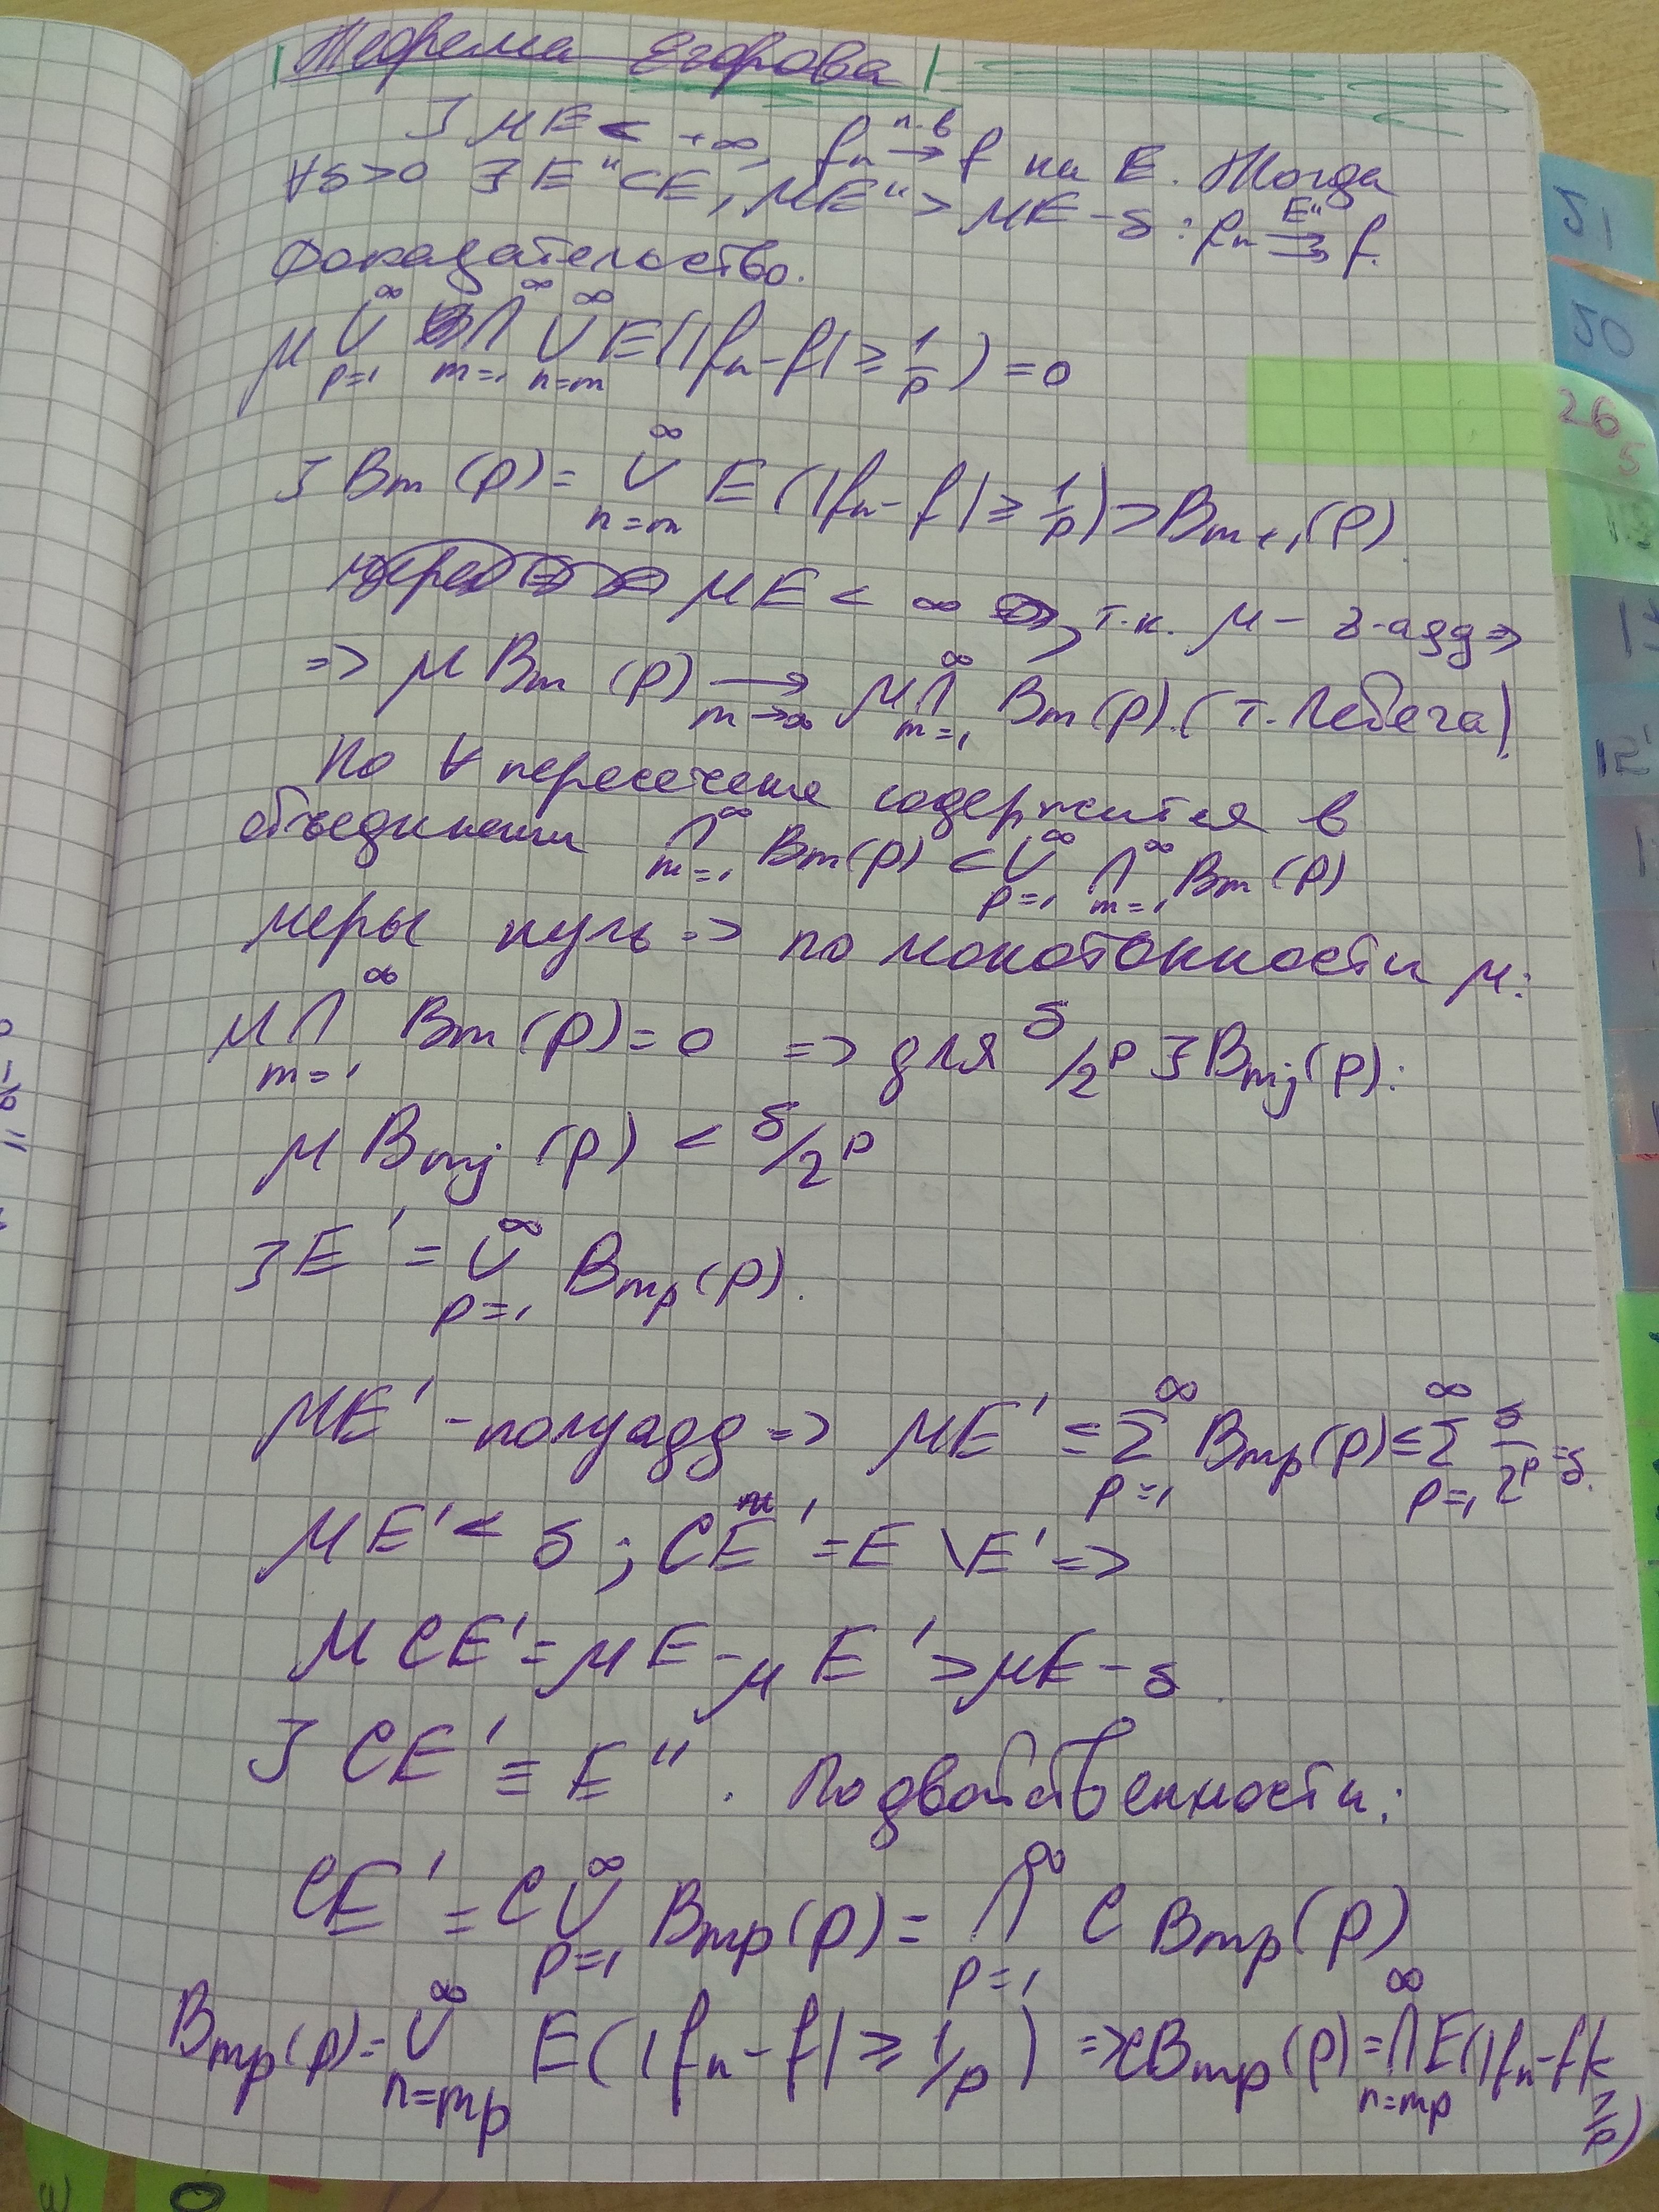 Теорема Егорова
] μE < +∞, fₙ →(п.в) f на E. Тогда
∀δ>0 ∃ E"⊂E, μE" > μE − δ : fₙ ⇉(E") f.
Доказательство.
μ ⋃_{p=1}^∞ ⋂_{m=1}^∞ ⋃_{n=m}^∞ E(|fₙ−f| ≥ 1/p) = 0
] Bm(p) = ⋃_{n=m}^∞ E(|fₙ−f| ≥ 1/p) ⊃ Bm+1(p).
μE < ∞, т.к. μ − σ-адд ⇒
⇒ μ Bm(p) →_{m→∞} μ ⋂_{m=1}^∞ Bm(p). (т. Лебега)
Но ∀ пересечение содержится в
объединении ⋂_{m=1}^∞ Bm(p) ⊂ ⋃_{p=1}^∞ ⋂_{m=1}^∞ Bm(p)
меры нуль ⇒ по монотонности μ:
μ ⋂_{m=1}^∞ Bm(p) = 0 ⇒ для δ/2^p ∃ Bmj(p):
μ Bmj(p) < δ/2^p
] E' = ⋃_{p=1}^∞ Bmp(p).
μE' − полуадд ⇒ μE' ≤ Σ_{p=1}^∞ Bmp(p) ≤ Σ_{p=1}^∞ δ/2^p = δ.
μE' < δ ; CE' = E \ E' ⇒
μCE' = μE − μE' > μE − δ.
] CE' ≡ E". По двойственности:
CE' = C ⋃_{p=1}^∞ Bmp(p) = ⋂_{p=1}^∞ C Bmp(p)
Bmp(p) = ⋃_{n=mp}^∞ E(|fₙ−f| ≥ 1/p) ⇒ CBmp(p) = ⋂_{n=mp}^∞ E(|fₙ−f| < 1/p)
51
50
26
5
13
12